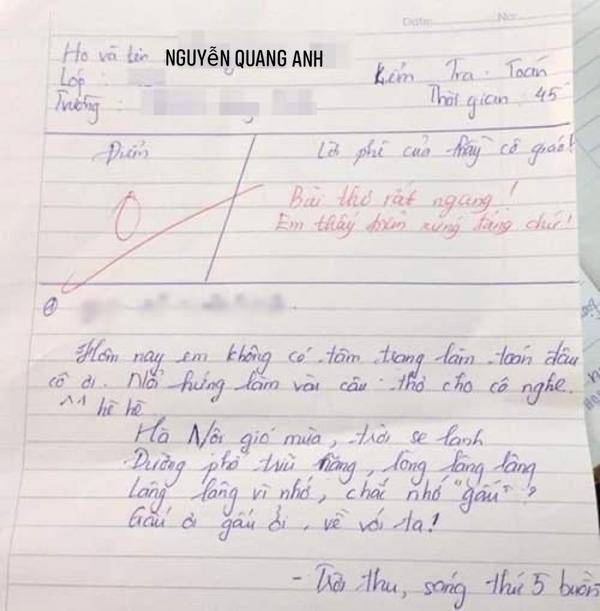 Date: No:
Họ và tên NGUYỄN QUANG ANH
Lớp :
Trường :
Kiểm Tra. Toán
Thời gian: 45'
Điểm
Lời phê của thầy cô giáo!
0
Bài thơ rất ngang!
Em thấy điểm xứng đáng chứ!
1
Hôm nay em không có tâm trạng làm toán đâu
cô ơi. Nổi hứng làm vài câu thơ cho cô nghe.
^^ hề hề
Hà Nội gió mùa, trời se lạnh
Đường phố trĩu nặng, lòng lâng lâng
Lâng lâng vì nhớ, chắc nhớ "gấu"?
Gấu ơi gấu ơi, về với ta!
- Trời thu, sáng thứ 5 buồn